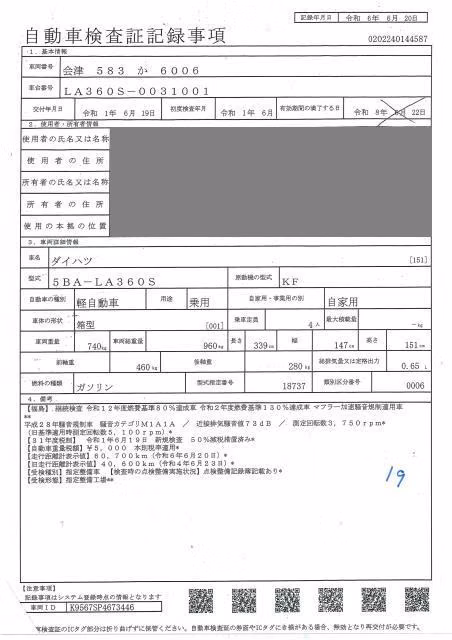 記録年月日 令和 6年 6月 20日
自動車検査証記録事項
0202240144587
1. 基本情報
車両番号 会津 583 か 6006
車台番号 LA360S-0031001
交付年月日 令和 1年 6月 19日 初度検査年月 令和 1年 6月 有効期間の満了する日 令和 8年 6月 22日
2. 使用者・所有者情報
使用者の氏名又は名称
使用者の住所
所有者の氏名又は名称
所有者の住所
使用の本拠の位置
3. 車両詳細情報
車名 ダイハツ [151]
型式 5BA-LA360S 原動機の型式 KF
自動車の種別 軽自動車 用途 乗用 自家用・事業用の別 自家用
車体の形状 箱型 [001] 乗車定員 4人 最大積載量 -kg
車両重量 740kg 車両総重量 960kg 長さ 339cm 幅 147cm 高さ 151cm
前軸重 460kg 後軸重 280kg 総排気量又は定格出力 0.65 L
燃料の種類 ガソリン 型式指定番号 18737 類別区分番号 0006
4. 備考
【福島】,継続検査 令和12年度燃費基準80%達成車 令和2年度燃費基準130%達成車 マフラー加速騒音規制適用車
**
平成28年騒音規制車 騒音カテゴリM1A1A / 近接排気騒音値73dB / 測定回転数3,750rpm*
(旧基準適用時測定回転数5,100rpm)*
【31年度税制】 令和1年6月19日 新規検査 50%減税措置済み*
【自動車重量税額】¥5,000 本則税率適用*
【走行距離計表示値】60,700km(令和6年6月20日)*
【旧走行距離計表示値】40,600km(令和4年6月23日)*
【受検種別】指定整備車 【検査時の点検整備実施状況】点検整備記録簿記載あり*
【受検形態】指定整備工場**
19
【注意事項】
記録事項はシステム登録時点の情報となります
車両ID K9567SP4673446
車検査証のICタグ部分は折り曲げずに保管ください。自動車検査証の券面やICタグにき損がある場合、無効となり再交付が必要です。